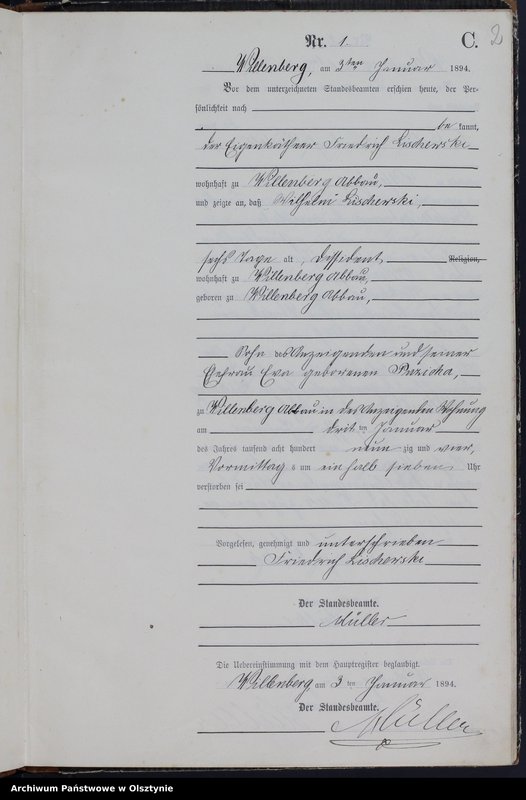 2
Nr. 1. C.
Willenberg, am 3ten Januar 1894.
Vor dem unterzeichneten Standesbeamten erschien heute, der Per-
sönlichkeit nach
be kannt,
der Eigenkäthner Friedrich Lischewski
wohnhaft zu Willenberg Abbau,
und zeigte an, daß Wilhelm Lischewski,
sechs Tage alt, Dissident Religion,
wohnhaft zu Willenberg Abbau,
geboren zu Willenberg Abbau,
Sohn des Anzeigenden und seiner
Ehefrau Eva geborenen
zu Willenberg Abbau in des Anzeigenden Wohnung
am dritten Januar
des Jahres tausend acht hundert neun zig und vier,
Vormittag s um ein halb sieben Uhr
verstorben sei
Vorgelesen, genehmigt und unterschrieben
Friedrich Lischewski
Der Standesbeamte.
Müller
Die Uebereinstimmung mit dem Hauptregister beglaubigt.
Willenberg, am 3 ten Januar 1894.
Der Standesbeamte.
Müller
Archiwum Państwowe w Olsztynie